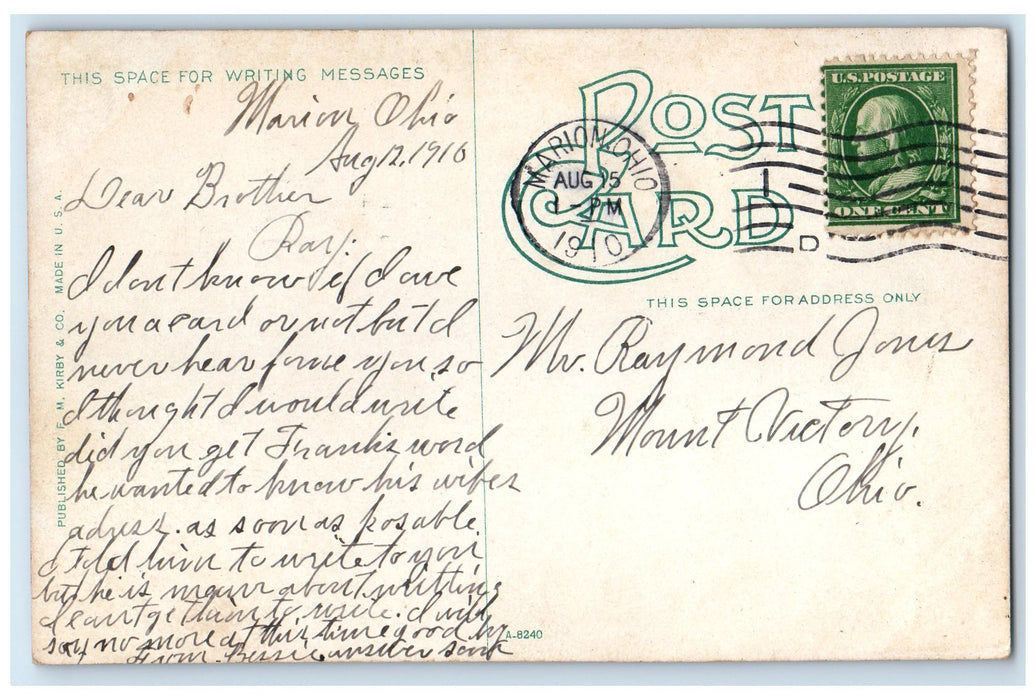 THIS SPACE FOR WRITING MESSAGES
Marion Ohio
Aug 12, 1910
Dear Brother
Ray.
I dont know if I owe
you a card or not but I
never hear frome you, so
I thought I would write
did you get Franks word
he wanted to know his wifes
adress. as soon as posable.
I told him to write to you
but he is about writting
I cant get him to write. I will
say no more at this time good by
From Bessie answer soon
PUBLISHED BY F. M. KIRBY & CO. MADE IN U. S. A.
POST
CARD
MARION, OHIO
AUG 15
1 - PM
1910
D
U.S. POSTAGE
ONE CENT
THIS SPACE FOR ADDRESS ONLY
Mr. Raymond Jones
Mount Victory,
Ohio.
A-8240